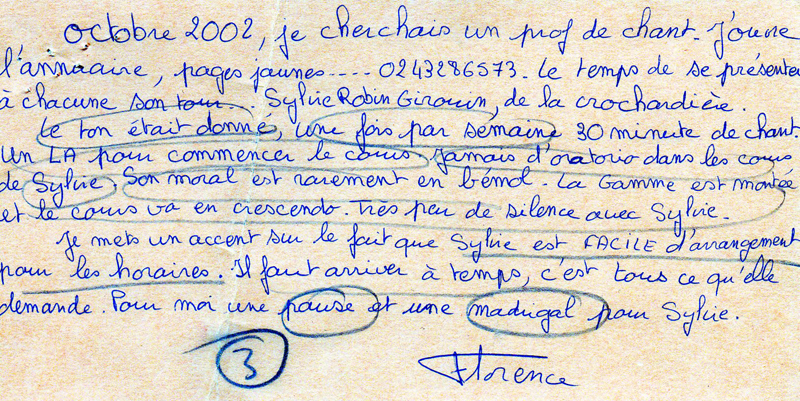 octobre 2002, je cherchais un prof de chant. J'ouvre
l'annuaire, pages jaunes.... 0243286573. Le temps de se présenter
à chacune son tour. Sylvie Robin Girouin, de la crochardière.
Le ton était donné, une fois par semaine 30 minute de chant.
Un LA pour commencer le cours. Jamais d'oratorio dans les cours
de Sylvie. Son moral est rarement en bémol. La Gamme est montée
et le cours va en crescendo. Très peu de silence avec Sylvie.
Je mets un accent sur le fait que Sylvie est FACILE d'arrangement
pour les horaires. Il faut arriver à temps, c'est tous ce qu'elle
demande. Pour moi une pause et une madrigal pour Sylvie.
3
Florence